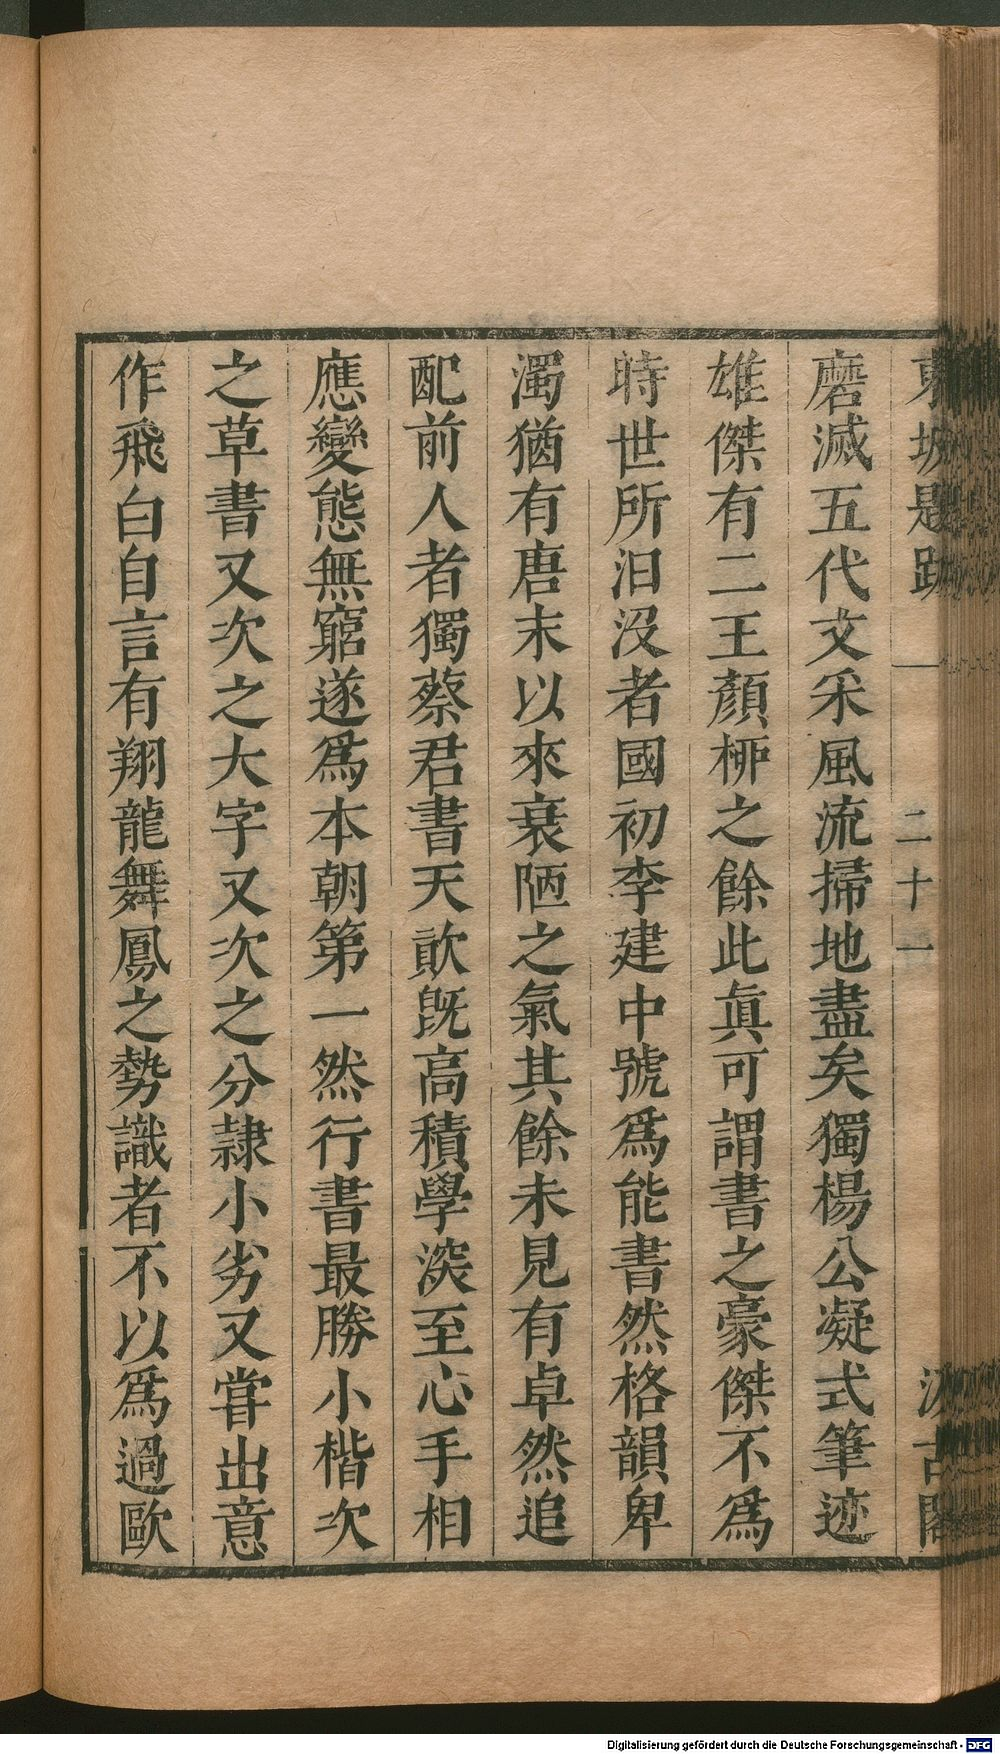 東坡題跋 二十一 汲古閣
磨滅五代文采風流掃地盡矣獨楊公凝式筆迹
雄傑有二王顏栁之餘此眞可謂書之豪傑不爲
時世所汩没者國初李建中號爲能書然格韻卑
濁猶有唐末以來衰陋之氣其餘未見有卓然追
配前人者獨蔡君書天㱃旣高積學深至心手相
應變態無窮遂爲本朝第一然行書最勝小楷次
之草書又次之大字又次之分隷小劣又嘗出意
作飛白自言有翔龍舞鳳之勢識者不以爲過歐
Digitalisierung gefördert durch die Deutsche Forschungsgemeinschaft - DFG